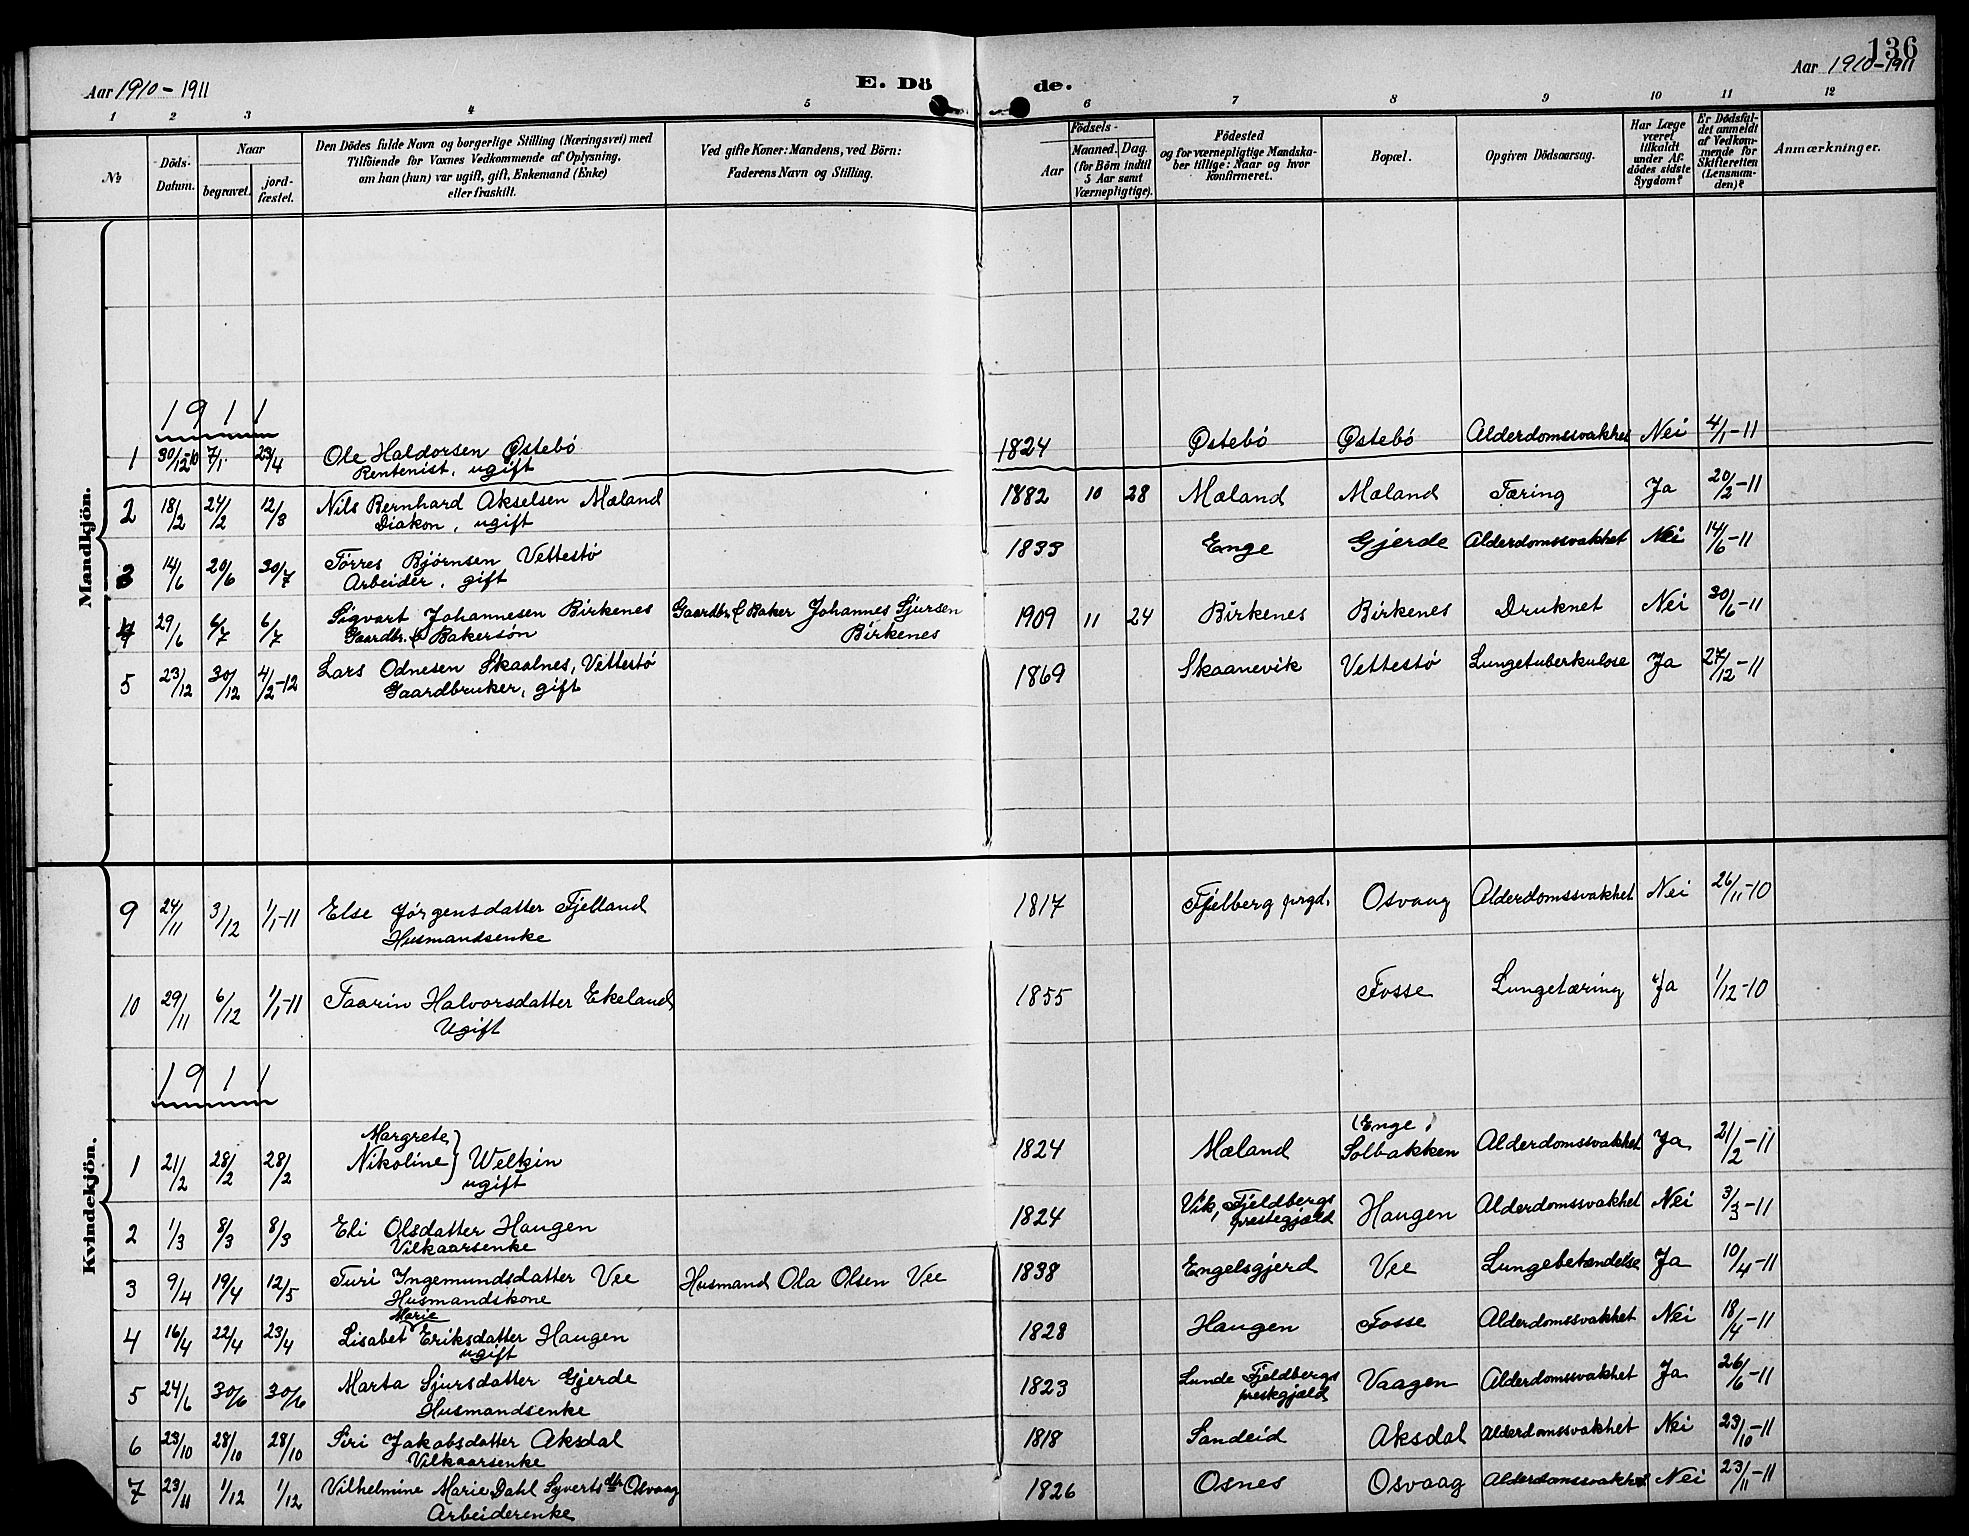 136
Aar 1910-1911
E. Dö de.
Aar 1910-1911
1 2 3 4 5 6 7 8 9 10 11 12
№
Döds-Datum.
Naar
begravet.
jord-fæstet.
Den Dödes fulde Navn og borgerlige Stilling (Næringsvei) med
Tilföiende for Voxnes Vedkommende af Oplysning,
om han (hun) var ugift, gift, Enkemand (Enke)
eller fraskilt.
Ved gifte Koner: Mandens, ved Börn:
Faderens Navn og Stilling.
Födsels-
Aar
Maaned. Dag.
(for Börn indtil
5 Aar samt
Værnepligtige).
Födested
og for værnepligtige Mandska-
ber tillige: Naar og hvor
konfirmeret.
Bopæl.
Opgiven Dödsaarsag.
Har Læge
været
tilkaldt
under Af-
dödes sidste
Sygdom?
Er Dödsfal-
det anmeldt
af Vedkom-
mende for
Skifteretten
(Lensman-
den)?
Anmærkninger.
Mandkjön.
1911
1 30/12-10 7/1 23/4 Ole Haldorsen Østebö 1824 Østebö Østebö Alderdomssvakhet Nei 4/1-11
Rentenist, ugift
2 18/2 24/2 12/3 Nils Bernhard Akselsen Mæland 1882 10 28 Mæland Mæland Tæring Ja 20/2-11
Diakon, ugift
3 14/6 20/6 30/7 Törres Bjørnsen Vettestö 1833 Enge Gjerde Alderdomssvakhet Nei 14/6-11
Arbeider, gift
4 29/6 6/7 6/7 Sigvart Johannesen Birkenes Gaardbr. & Baker Johannes Sjursen 1909 11 24 Birkenes Birkenes Druknet Nei 30/6-11
Gaardbr. & Bakersøn Birkenes
5 23/12 30/12 4/2-12 Lars Odnesen Skaalnes, Vettestø 1869 Skaanevik Vettestø Lungetuberkulose Ja 27/12-11
Gaardbruker, gift
Kvindekjön.
9 24/11 3/12 1/1-11 Else Jørgensdatter Fjelland 1817 Fjelberg prgd. Osvaag Alderdomssvakhet Nei 26/11-10
Husmandsenke
10 29/11 6/12 1/1-11 Taarin Halvorsdatter Ekeland 1855 Fosse Lungetæring Ja 1/12-10
Ugift
1911
Margrete (Enge)
1 21/2 28/2 28/2 Nikoline} Welkin 1824 Mæland Solbakken Alderdomssvakhet Ja 21/2-11
ugift
2 1/3 8/3 8/3 Eli Olsdatter Haugen 1824 Vik, Fjeldbergs Haugen Alderdomssvakhet Nei 3/3-11
Vilkaarsenke prestegjæld
3 9/4 19/4 12/5 Turi Ingemundsdatter Vee Husmand Ola Olsen Vee 1838 Engelsgjerd Vee Lungebetændelse Ja 10/4-11
Husmandskone
Marie
4 16/4 22/4 23/4 Lisabet Eriksdatter Haugen 1828 Haugen Fosse Alderdomssvakhet Nei 18/4-11
ugift
5 24/6 30/6 30/6 Marta Sjursdatter Gjerde 1823 Lunde Fjeldbergs Vaagen Alderdomssvakhet Ja 26/6-11
Husmandsenke preskgjæld
6 23/10 28/10 28/10 Siri Jakobsdatter Aksdal 1818 Sandeid Aksdal Alderdomssvakhet Nei 23/10-11
Vilkaarsenke
7 23/11 1/12 1/12 Vilhelmine Marie Dahl Syvertsdtr Osvaag 1826 Osnes Osvaag Alderdomssvakhet Nei 23/11-11
Arbeiderenke